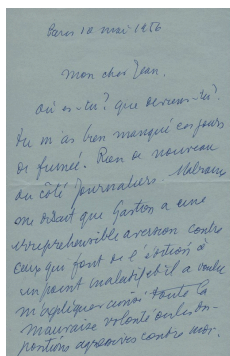 Paris 10 mai 1956
Mon cher Jean.
Où es-tu? que deviens-tu?
Tu m'as bien manqué ces jours
de Rien de nouveau
du côté Journaliers. Malraux
me disait que Gaston a une
irrépréhensible aversion contre
ceux qui font de l'édition à
un point maladif et il a voulu
m'expliquer ainsi toute la
mauvaise volonté ou les op-
positions contre moi.